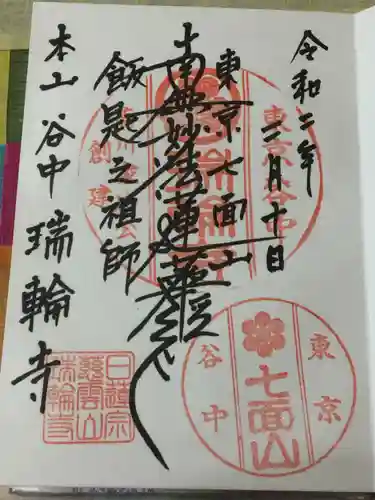 令和二年
二月十日
東京七面山
南無妙法蓮華経
飯匙之祖師
本山 谷中 瑞輪寺
東京谷中
創建
東京
七面山
谷中
日蓮宗
慈雲山
瑞輪寺